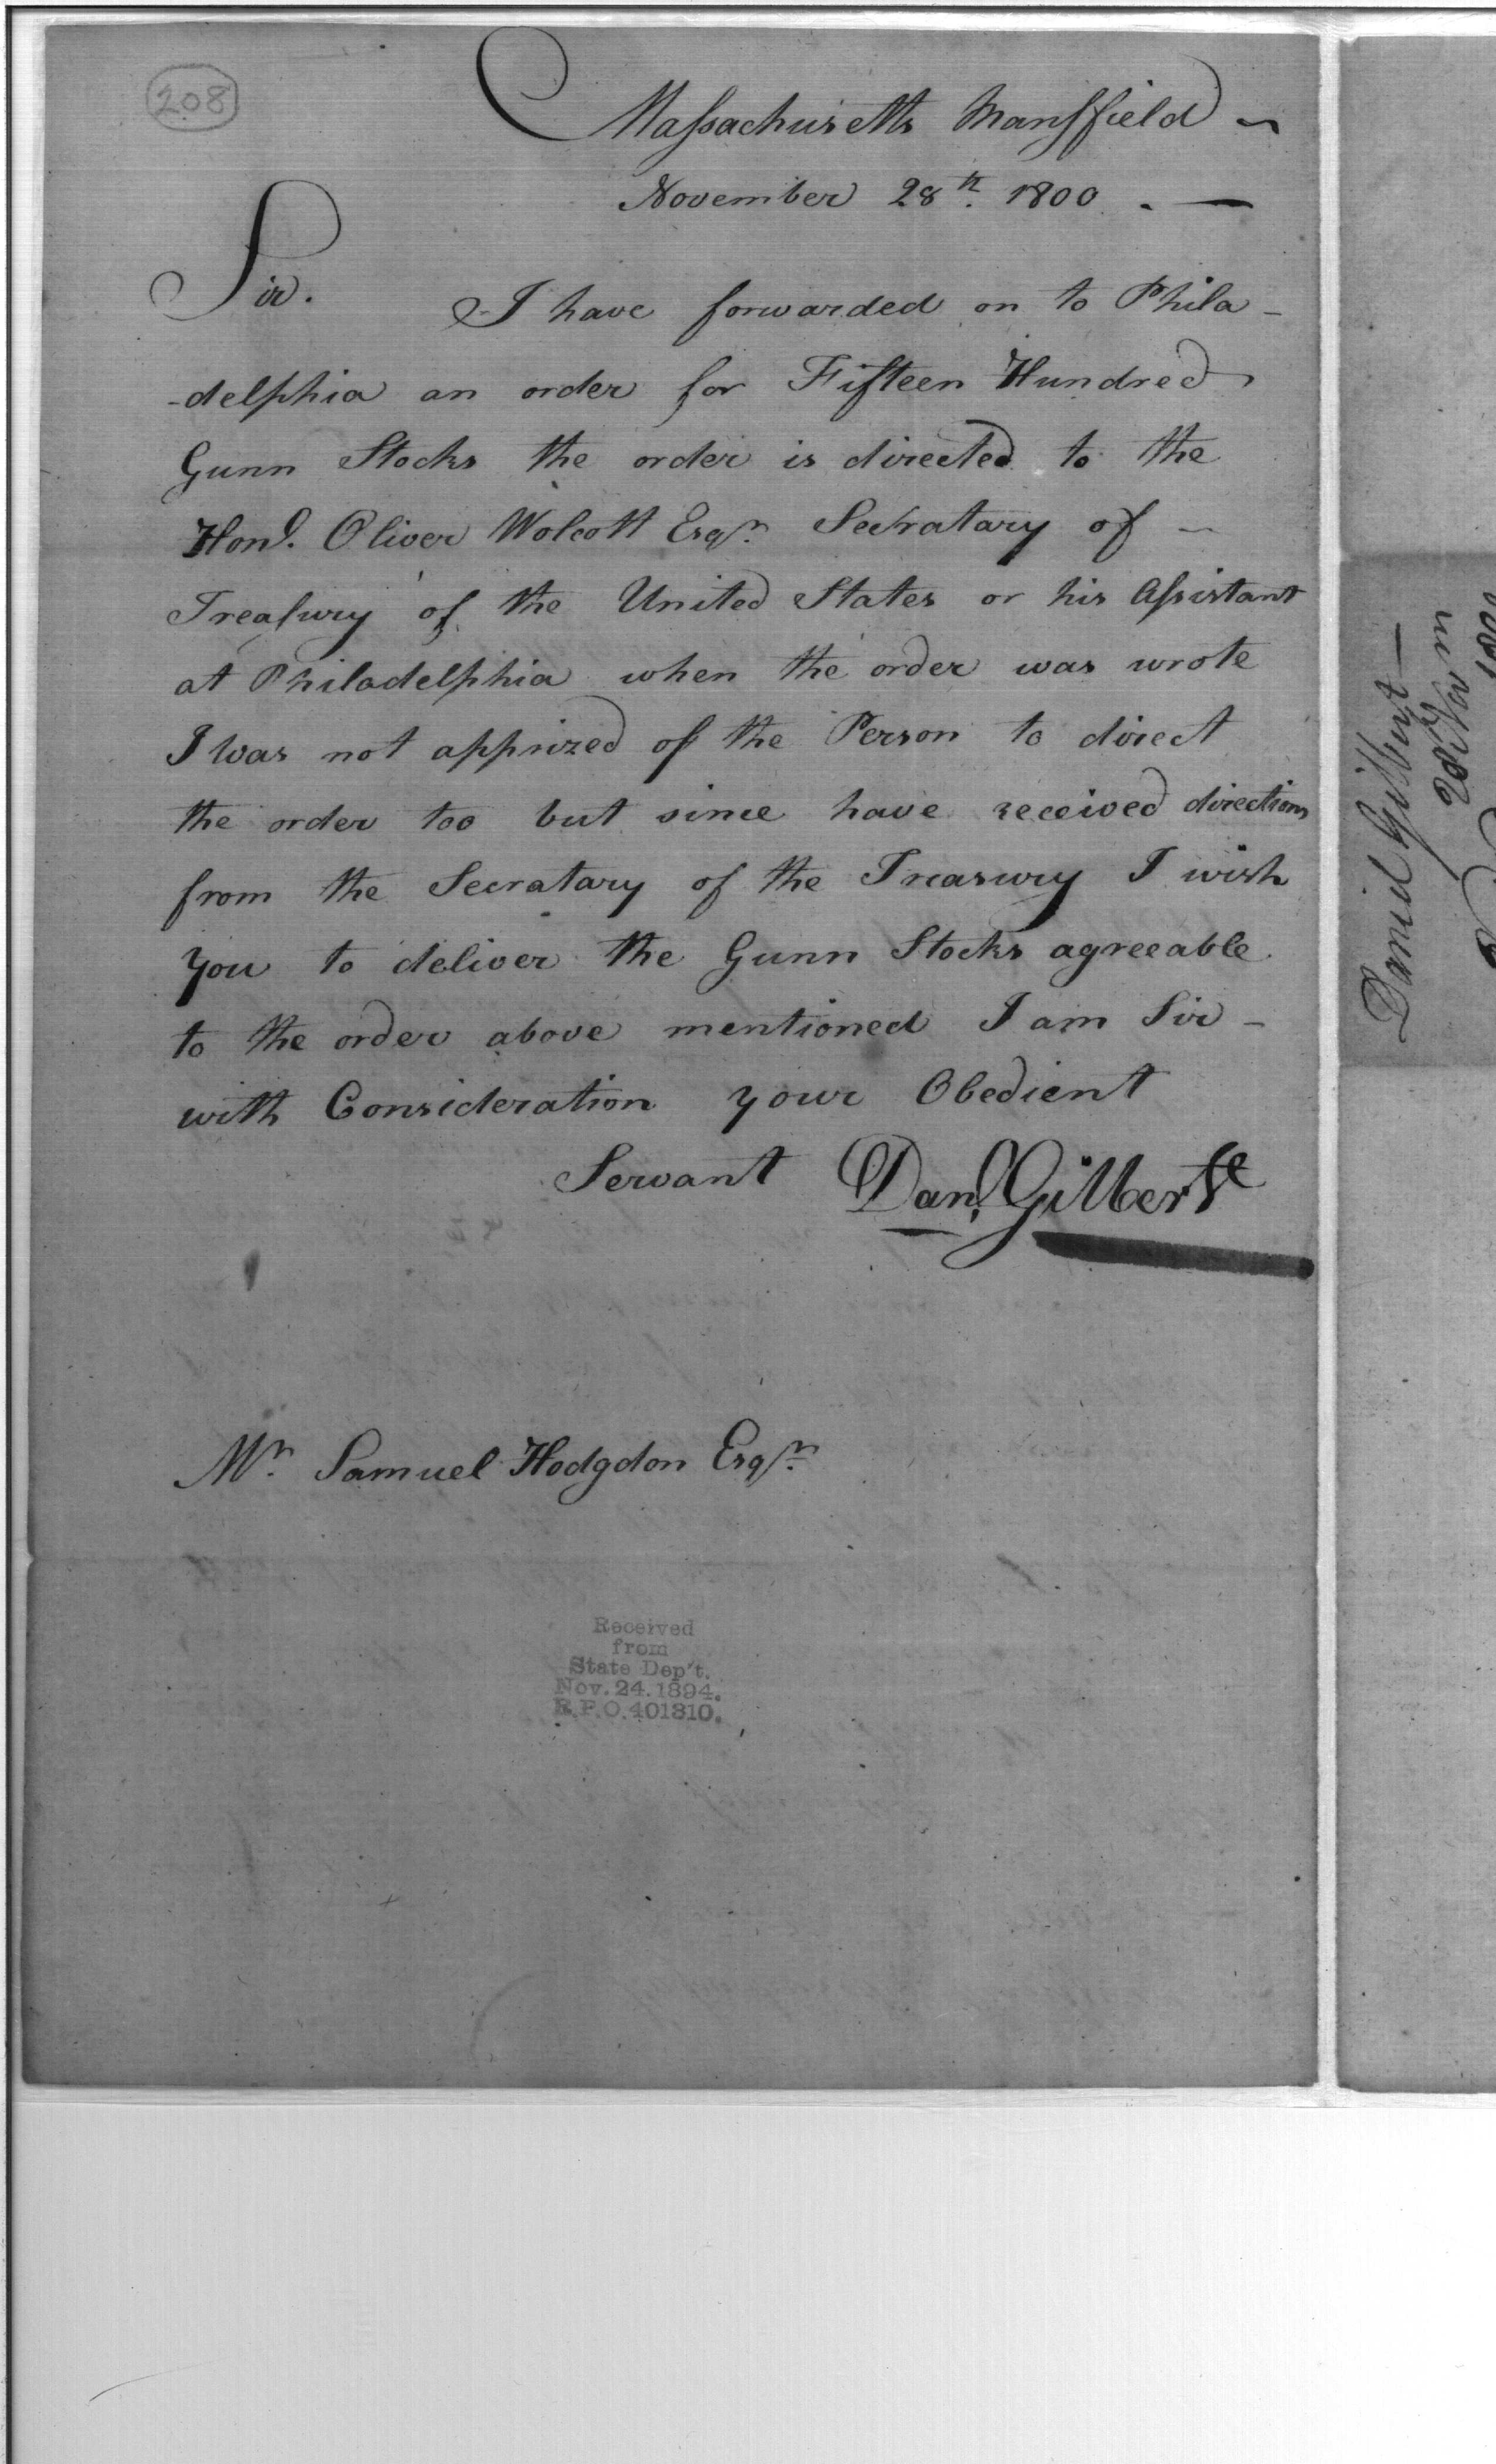 208
Massachusetts Mansfield
November 28th. 1800. —
Sir.
I have forwarded on to Phila-
-delphia an order for Fifteen Hundred
Gunn Stocks the order is directed to the
Hond. Oliver Wolcott Esqr. Secratary of -
Treasury of the United States or his Assistant
at Philadelphia when the order was wrote
I was not apprized of the Person to direct
the order too but since have received directions
from the Secratary of the Treasury I wish
you to deliver the Gunn Stocks agreeable
to the order above mentioned I am Sir -
with Consideration your Obedient
Servant Danl. Gilbert
Mr. Samuel Hodgdon Esqr.
Received
from
State Dep't.
Nov. 24. 1894.
R.P.O. 401310.
Daniel Gilbert —
28th Novm
1800